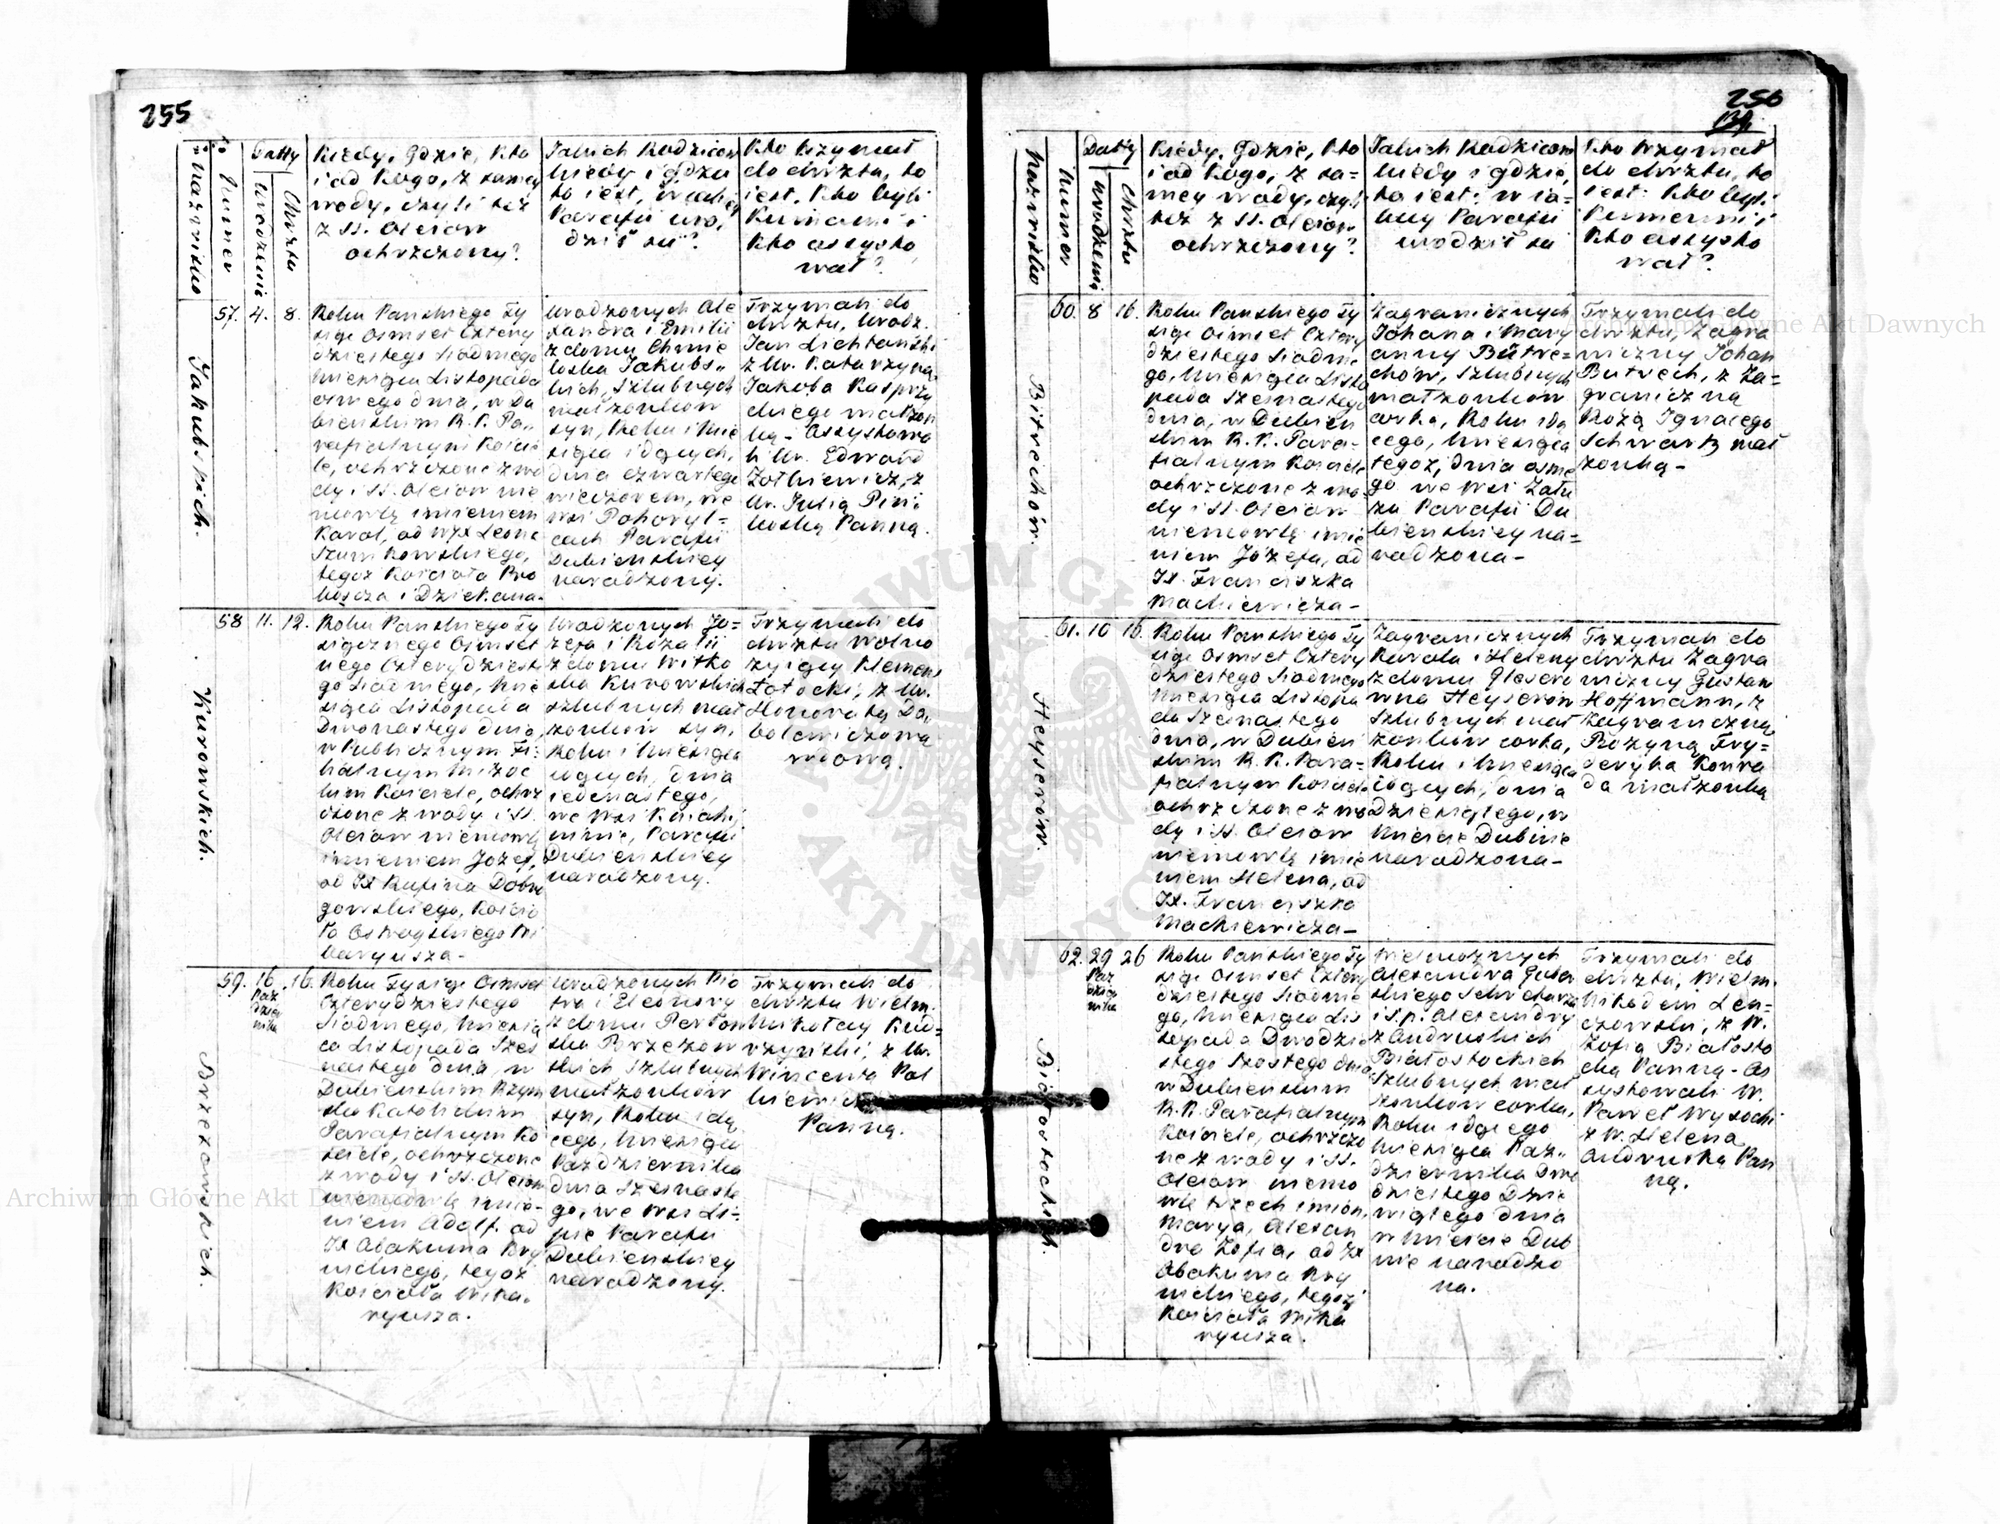 255
Nazwisko
Numer
Datty
urodzenia
Chrztu
Kiedy, Gdzie, Kto
i od Kogo, z samey
wody, czyli też
z SS. Oleiow
ochrzczony?
Jakich Rodziców
kiedy i gdzie
to iest, w iakiey
Parafii uro,
dził się?
Kto trzymał
do chrztu, to
iest, Kto byli
Kumami i
Kto assysto
wał?
Jakubskich.
57.
4.
8.
Roku Pańskiego Ty
siąc Osmset Cztery
dziestego Siodmego
Miesiąca Listopada
osmego dnia, w Du
bienskim R. K. Pa„
rafialnym Koscie
le, ochrzczone z wo
dy i SS. Oleiow nie
mowlę imieniem
Karol, od WJX Leona
Szumkowskiego,
tegoż Kościoła Pro
boszcza i Dziekana.
Urodzonych Ale
xandra i Emilii
z domu Chmie
loska Jakubs„
kich, Szlubnych
małżonkow
syn, Roku i Mie
siąca idących,
dnia czwartego
wieczorem, we
wsi Pohoryl=
cach Parafii
Dubienskiey
narodzony.
Trzymali do
chrztu, Urodz.
Jan Lichtanski
z Ur. Katarzyną
Jakoba Kasprzy
ckiego małżon
ką - Assystowa
li Ur. Edward
Żołkiewicz, z
Ur. Julią Pini
Panną.
Kurowskich.
58
11.
12.
Roku Pańskiego Ty
siącznego Osmset
nego Czterydziest
go Siodmego, Mie
siąca Listopada
Dwonastego dnia,
w Publicznym Fi:
lialnym Mizoc
kim Kościele, ochrz
czone z wody i SS.
Oleiow niemowlę
imieniem Jozef,
od JX Rufina Dobro
gowskiego, Kościo
ła Ostrogskiego Wi
karyusza -
Urodzonych Jo=
zefa i Rozalii
z domu Witko
ska Kurowskich
szlubnych mał
żonkow syn,
Roku i Miesiąca
idących, dnia
iedenastego,
we wsi
Parafii
Dubienskiey
narodzony.
Trzymali do
chrztu Wolno
żyiący Klemens
Łotocki, z Ur.
Honoratą Do„
bolewiczową
wdową.
Brzezowskich.
59.
16
Paź
dzier
nika
16.
Roku Tysiąc Osmset
Czterydziestego
Siodmego, Miesią
ca Listopada Szes
nastego dnia, w
Dubienskim Rzym
sko Katolickim
Parafialnym Ko
sciele, ochrzczone
z wody i SS. Oleiow
niemowlę imie-
niem Adolf. od
JX Abakuma Kry
nickiego, tegoż
Kościoła Wika„
ryusza.
Urodzonych Pio
tra i Eleonory
z domu Perkow
ska Brzezow
skich Szlubnych
małżonkow
syn, Roku idą
cego, Miesiąca
Października
dnia Szesnaste
go, we wsi Li=
pie Parafii
Dubienskiey
narodzony.
Trzymali do
chrztu Wielm.
Mikołay Rud-
rzynski, z Ur.
Wincentą
Panną.
256
134
Nazwisko
Numer
Datty
Urodzenia
Chrztu
Kiedy, Gdzie, Kto
i od Kogo, z sa=
mey wody, czyli
też z SS. Oleiow
ochrzczony?
Jakich Rodziców
kiedy i gdzie,
to iest: w ia=
kiey Parafii
urodził się
Kto trzymał
do chrztu, to
iest: Kto byli
Kumami, i
Kto assysto
wał?
Bitrechów.
60.
8
16.
Roku Pańskiego Ty
siąc Osmset Cztery
dziestego Siodme
go, Miesiąca Listo
pada Szesnastego
dnia, w Dubien
skim R. K. Para-
fialnym Kosciele
ochrzczone z wo
dy i SS. Oleiow
niemowlę imie
niem Józefa, od
JX. Franciszka
Mackiewicza -
Zagranicznych
Johana i Mary
anny Bütre=
chow, Szlubnych
małżonkow
corka, Roku idą
cego, Miesiąca
tegoż, dnia osme
go we Wsi Zału
żu Parafii Du
bienskiey na=
rodzona -
Trzymali do
chrztu, Zagra
niczny Johan
Butrech, z Za=
graniczną
Rozą Ignacego
Schwartz mał
żonką -
Heyserów.
61.
10
16.
Roku Pańskiego Ty
siąc Osmset Cztery
dziestego Siodmego
Miesiąca Listopa
da Szesnastego
dnia, w Dubien
skim R. K. Para=
fialnym Kosciele
ochrzczone z wo
dy i SS. Oleiow
niemowlę imie
niem Helena, od
JX. Franciszka
Mackiewicza -
Zagranicznych
Karola i Heleny
z domu Glesero
wna Heyserow
Szlubnych mał
żonkow corka,
Roku i Miesiąca
idących, dnia
Dziesiątego, w
Miescie Dubnie
narodzona -
Trzymali do
chrztu Zagra
niczny Gustaw
Hoffmann, z
Zagraniczną
Rozyną Fry=
deryka Konra
da małżonką
Białostockich.
62.
29
Paź
dzier
nika
26
Roku Pańskiego Ty
siąc Osmset Cztery
dziestego Siodme
go, Miesiąca Lis
topada Dwodzie
stego szostego dnia
w Dubienskim
R. K. Parafialnym
Kosciele, ochrzczo
ne z wody i SS.
Oleiow niemo
wle trzech imion,
Marya, Alexan
dra Zofia, od JX
Abakuma Kry
nickiego, tegoż
Kościoła Wika
ryusza.
Wielmożnych
Alexandra Guber
skiego Sekretarza
i ś.p. Alexandry
z Andruskich
Białostockich
Szlubnych mał
żonkow corka,
Roku idącego
Miesiąca Paź„
dziernika Dwu
dziestego Dzie
wiątego dnia
w Miescie Dub
nie narodzo
na.
Trzymali do
chrztu, Wielm.
Nikodem Len=
czowski, z W.
Zofią Białosto
cką Panną - As
systowali W.
Paweł Wysocki
z W. Heleną
Andruską Pan
ną.
Archiwum Główne Akt Dawnych
Archiwum Główne Akt Dawnych
ARCHIWUM GŁÓWNE AKT DAWNYCH